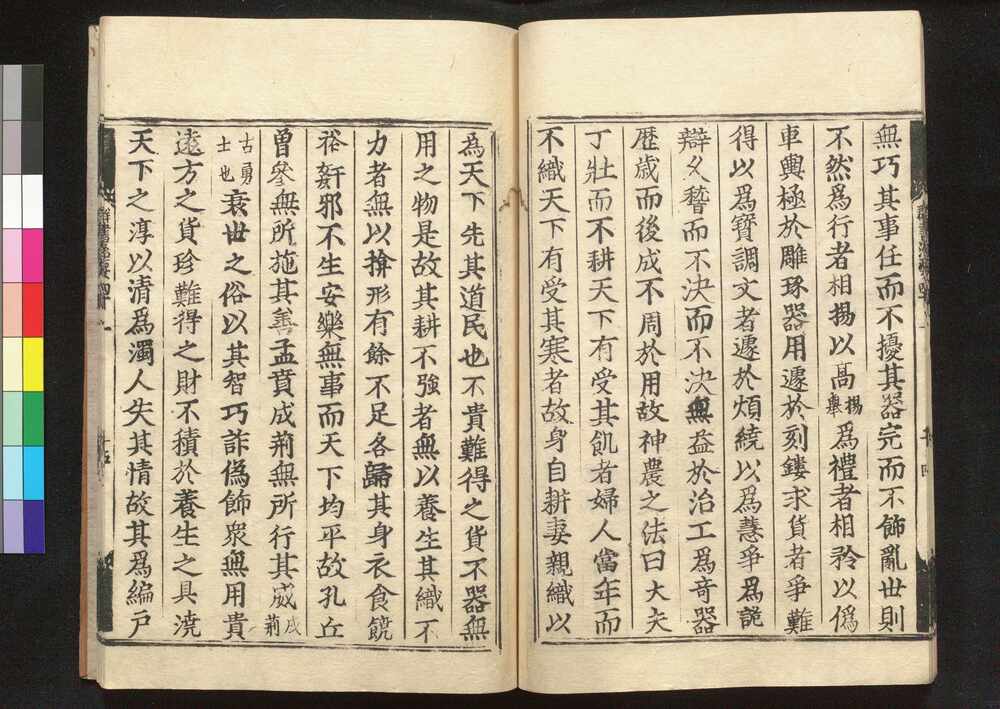 無巧其事任而不擾其器完而不飾亂世則
不然爲行者相揚以高揚擧爲禮者相矜以僞
車輿極於雕琢器用遽於刻鏤求貨者爭難
得以爲寳調文者遽於煩繞以爲慧爭爲詭
辯久稽而不決而不決無益於治工爲奇器
歴歳而後成不周於用故神農之法曰大夫
丁壯而不耕天下有受其飢者婦人當年而
不織天下有受其寒者故身自耕妻親織以
為天下先其道民也不貴難得之貨不器無
用之物是故其耕不強者無以養生其織不
力者無以揜形有餘不足各歸其身衣食饒
裕姧邪不生安樂無事而天下均平故孔丘
曽參無所施其善孟賁成荊無所行其威成荊
古勇士也衰世之俗以其智巧詐偽飾衆無用貴
遠方之貨珍難得之財不積於養生之具澆
天下之淳以清爲濁人失其情故其爲編戸